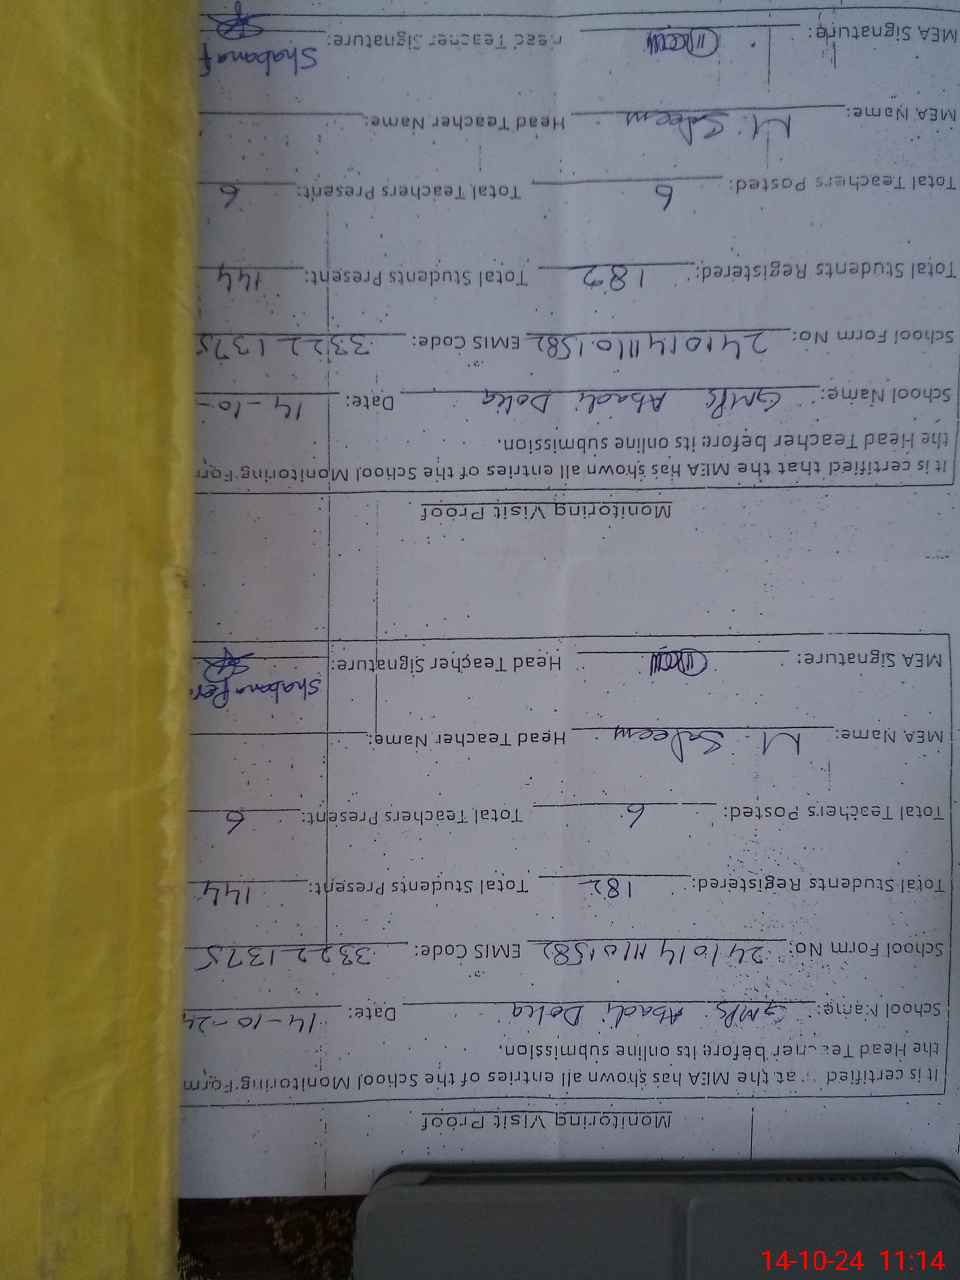 Monitoring Visit Proof
It is certified at the MEA has shown all entries of the School Monitoring Form
the Head Teacher before its online submission.
School Name: GMPS Abadi Dolia Date: 14-10-24
School Form No: EMIS Code: 33221375
Total Students Registered: 182 Total Students Present: 144
Total Teachers Posted: 6 Total Teachers Present: 6
MEA Name: M. Saleem Head Teacher Name:
Shabana
MEA Signature: Head Teacher Signature:
Monitoring Visit Proof
It is certified that the MEA has shown all entries of the School Monitoring For
the Head Teacher before its online submission.
School Name: GMPS Abadi Dolia Date: 14-10-
School Form No: EMIS Code: 33221375
Total Students Registered: 182 Total Students Present: 144
Total Teachers Posted: 6 Total Teachers Present: 6
MEA Name: M. Saleem Head Teacher Name:
Shabana f
MEA Signature: Head Teacher Signature:
14-10-24 11:14